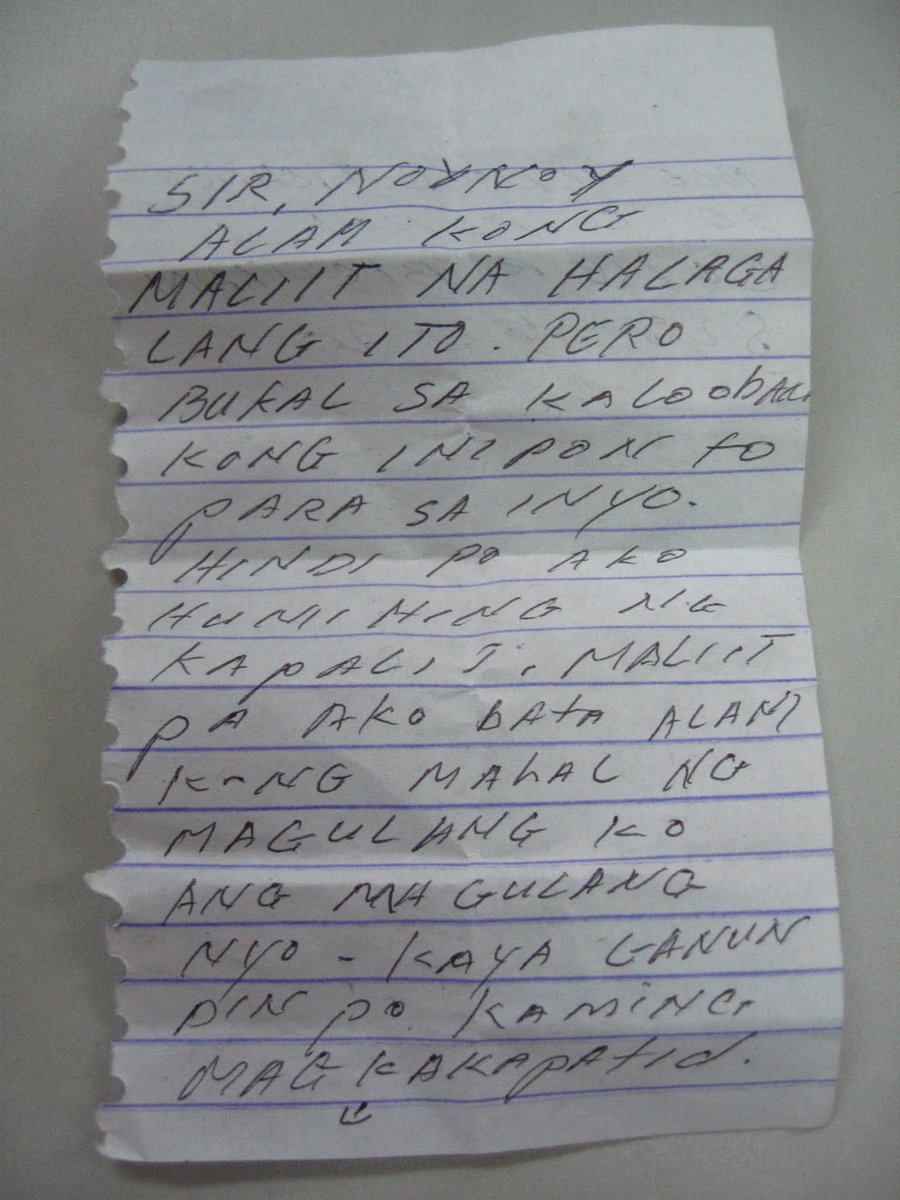 SIR, NOYNOY
ALAM KONG
MALIIT NA HALAGA
LANG ITO. PERO
BUKAL SA KALOObAN
KONG INIPON tO
PARA SA INYO.
HINDI PO AKO
HUMIHING NG
KAPALIT. MALIIT
PA AKO bAtA ALAM
KONG MAHAL NG
MAGULANG KO
ANG MAGULANG
NYO - KAYA GANUN
DIN PO KAMING
MAGKAKAPAtId.